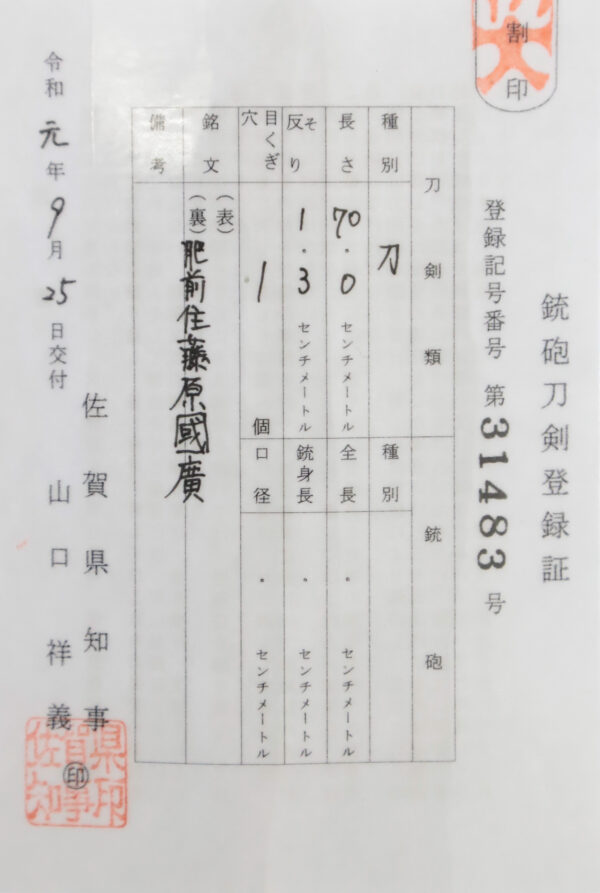 割
印
銃砲刀剣登録証
登録記号番号 第31483号
刀剣類
銃砲
種別
刀
種別
長さ
70.0
センチメートル
全長
・
センチメートル
反り
そ
1.3
センチメートル
銃身長
・
センチメートル
目くぎ穴
1
個
口径
・
センチメートル
銘文
(表)
(裏)
肥前住藤原國廣
備考
令和元年9月25日交付
佐賀県知事
山口祥義
印
佐賀県知事印